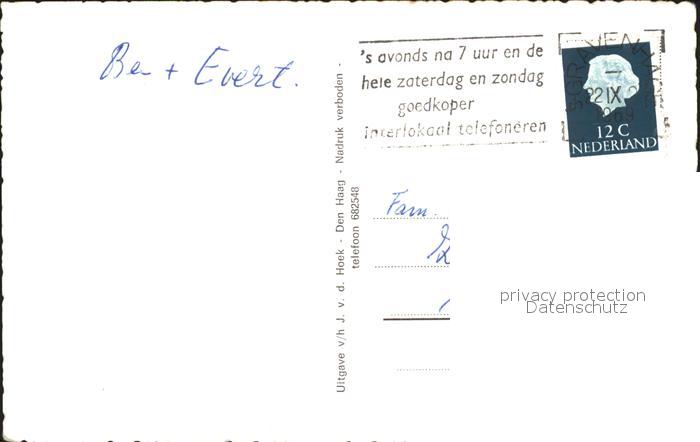 Be + Evert.
's avonds na 7 uur en de
hele zaterdag en zondag
goedkoper
interlokaal telefoneren
'S GRAVENHAGE
22 IX
1969
12 C
NEDERLAND
Uitgave v/h J. v. d. Hoek - Den Haag - Nadruk verboden -
telefoon 682548
Fam.
privacy protection
Datenschutz